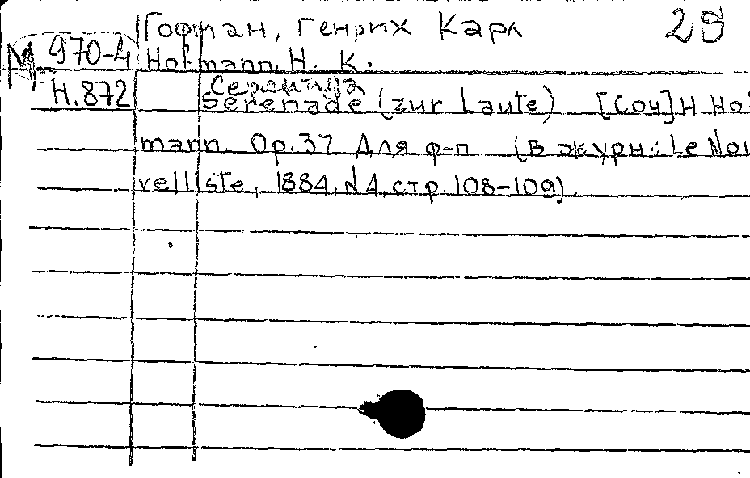 Гофман, Генрих Карл 29
М 970-4 Hofmann, H. K.
Н.872 Серенада
Serenade (zur Laute) [Соч] H. Hof
mann. Op. 37 Для ф-п (В журн.: Le Nou
velliste, 1884, N 4, стр. 108-109).